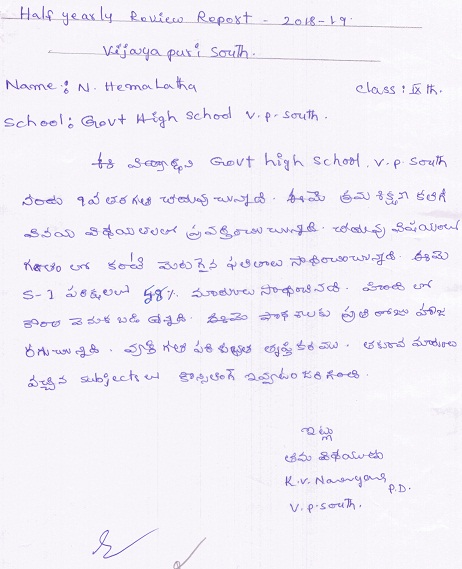 Half yearly Review Report - 2018-19
Vijayapuri South.
Name: N. Hemalatha class: IX th.
School: Govt High School V.P. South.
ఈ విద్యార్థిని Govt high School, V.P. South
నందు 9వ తరగతి చదువుచున్నది. ఈమె క్రమశిక్షణ కలిగి
వినయ విధేయతలతో ప్రవర్తించుచున్నది. చదువు విషయంలో
గతంలో కంటే మెరుగైన ఫలితాలు సాధించుచున్నది. ఈమె
S-1 పరీక్షలలో % మార్కులు సాధించినది. హిందీ లో
కొంత వెనుకబడి ఉన్నది. ఈమె పాఠశాలకు ప్రతి రోజు హాజ
రగుచున్నది. వ్యక్తిగత పరిశుభ్రత తృప్తికరము. తక్కువ మార్కులు
వచ్చిన subjects లో కౌన్సిలింగ్ ఇవ్వడం జరిగింది.
ఇట్లు
తమ విధేయుడు
K.V. Narayana P.D.
V.P. South.